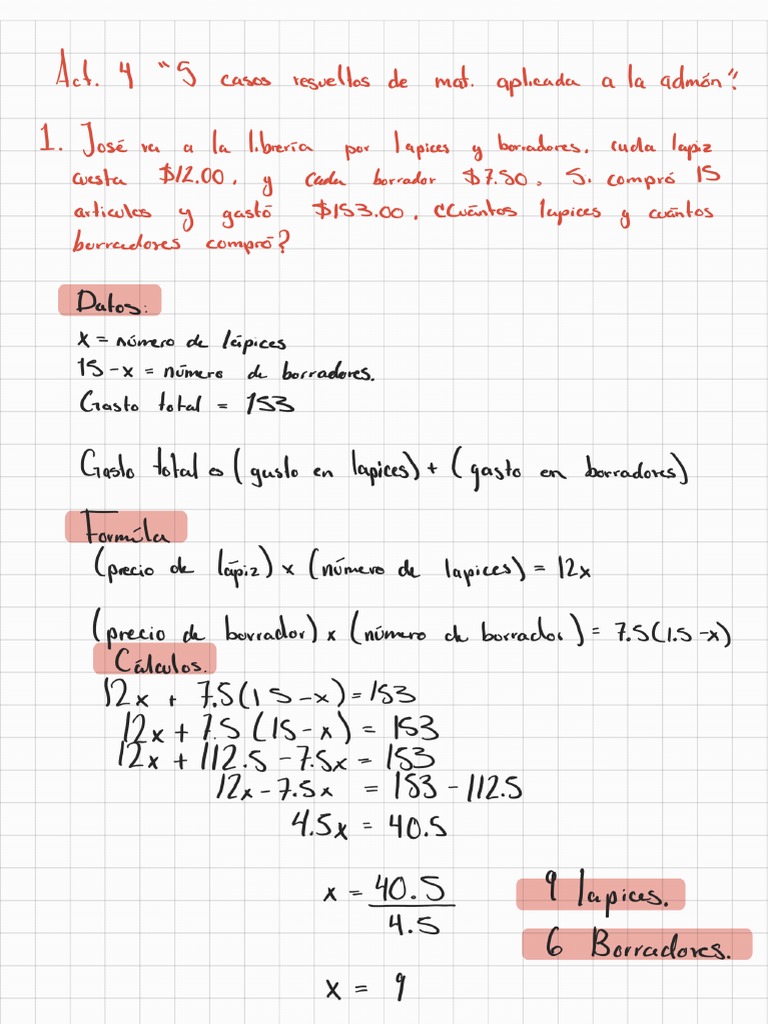 Act. 4 "5 casos resueltos de mat. aplicada a la admón".
1. José va a la librería por lapices y borradores, cada lapiz
cuesta $12.00, y cada borrador $7.50. Si compró 15
articulos y gastó $153.00, ¿Cuántos lapices y cuántos
borradores compró?
Datos:
x = número de lápices
15 - x = número de borradores.
Gasto total = 153
Gasto total = (gasto en lapices) + (gasto en borradores)
Formúla
(precio de lápiz) x (número de lapices) = 12x
(precio de borrador) x (número de borrador) = 7.5(1.5 - x)
Cálculos.
12x + 7.5(15 - x) = 153
12x + 7.5 (15 - x) = 153
12x + 112.5 - 7.5x = 153
12x - 7.5x = 153 - 112.5
4.5x = 40.5
x = 40.5
4.5
9 lapices.
6 Borradores.
x = 9